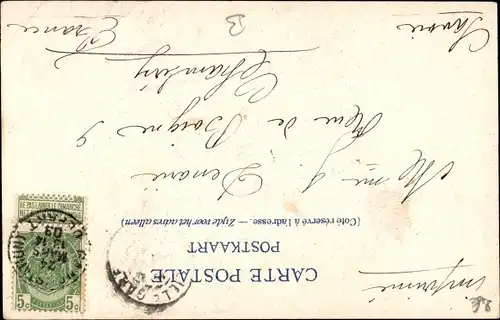 CARTE POSTALE
POSTKAART
(Côté réservé à l'adresse. — Zijde voor het adres alleen)
imprimé
Mme J. Denarié
Rue de Boigne 9
Chambéry
Savoie
France
B
NE PAS LIVRER LE DIMANCHE
5c 5c